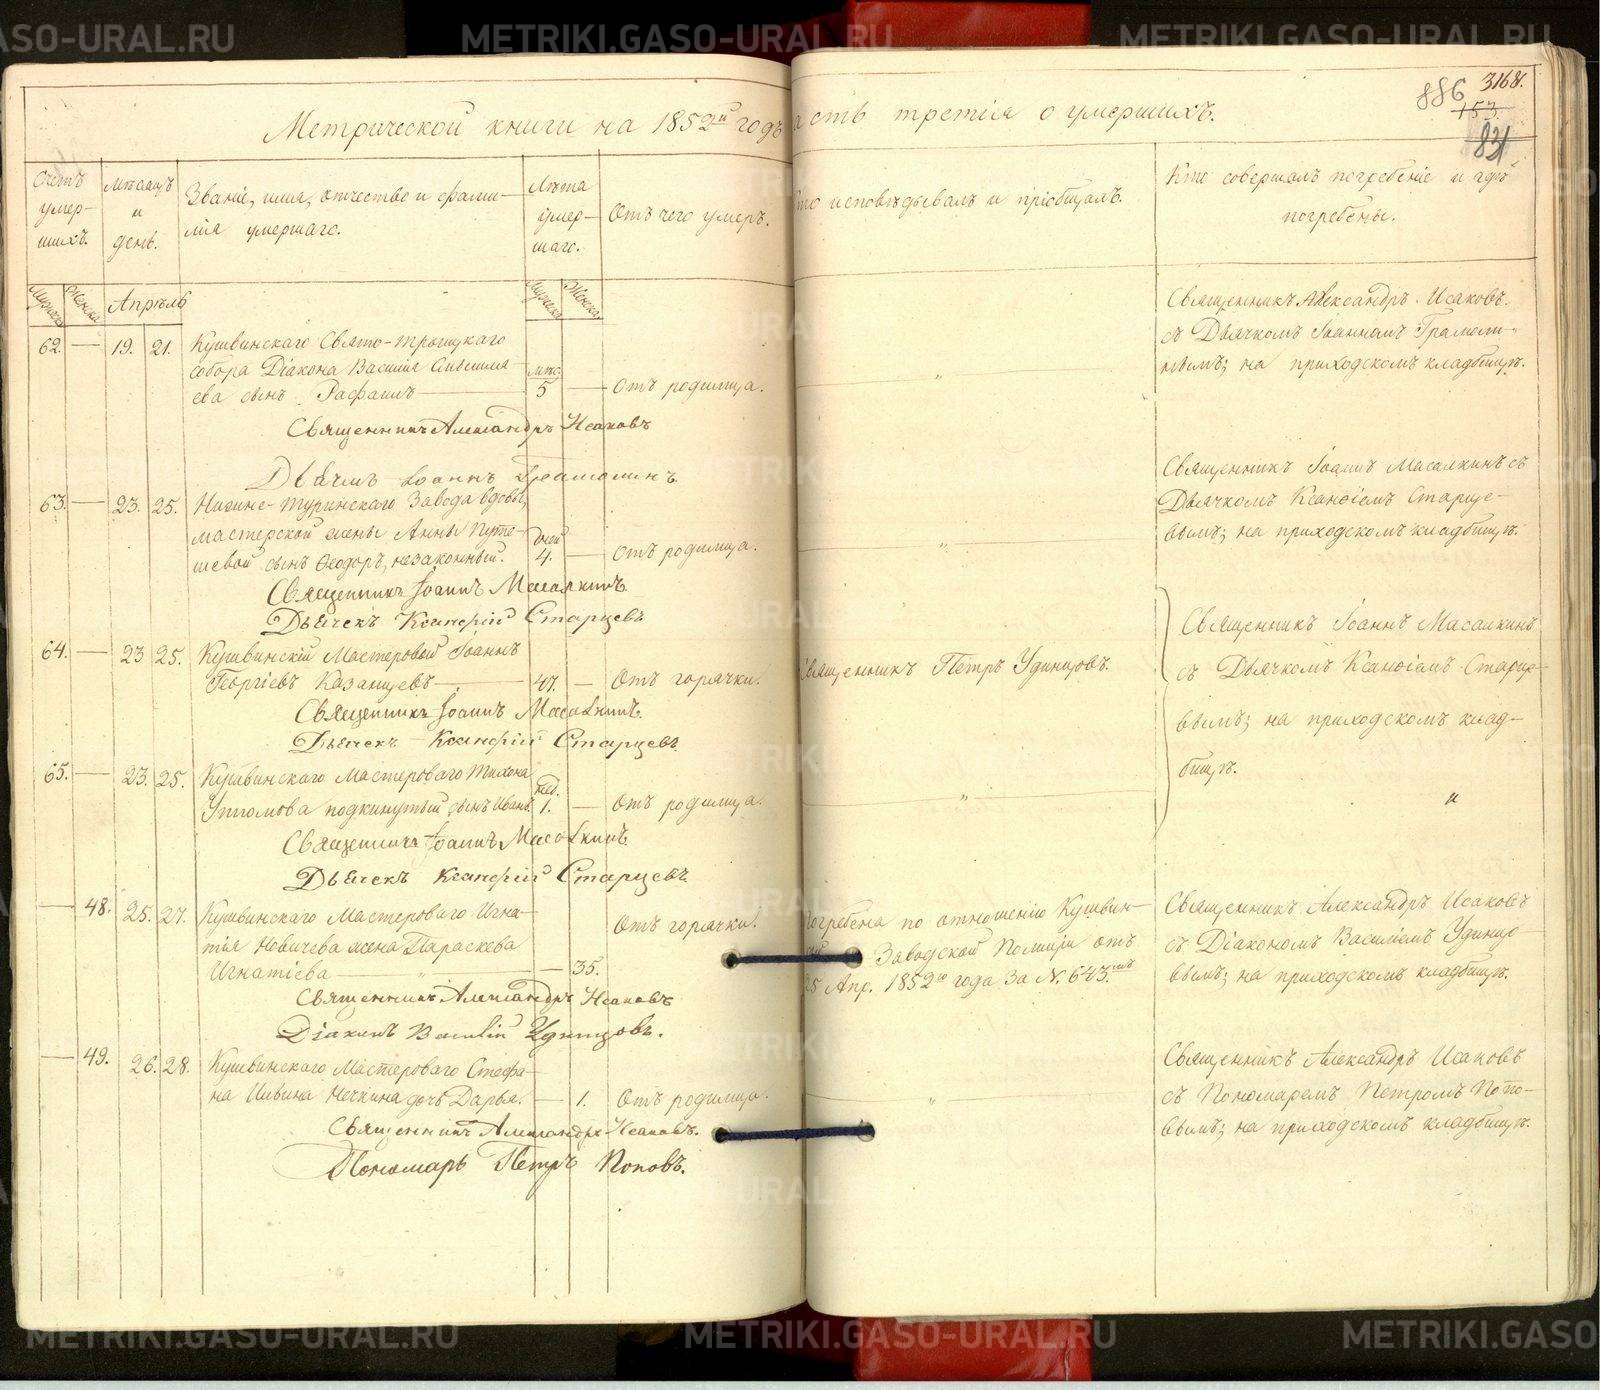 METRIKI.GASO-URAL.RU
Метрической книги на 1852й годъ
Часть третія о умершихъ.
886 3168.
153.
831
Счетъ умер-шихъ.
Мѣсяцъ и день.
Званіе, имя, отчество и фами-
лія умершаго.
Лѣта умер-шаго.
Отъ чего умеръ.
Кто исповѣдывалъ и пріобщалъ.
Кто совершалъ погребеніе и гдѣ
погребены.
Мужеска Женска Апрѣль Мужеска Женска
62. — 19. 21. Кушвинскаго Свято-Троицкаго
собора Діакона Василія
ева сынъ Рафаилъ — мѣс. 5 — Отъ родимца. „
Священникъ Александръ Исаковъ.
съ Дьячкомъ Іоанномъ Грамоли-
нымъ; на приходскомъ кладбищѣ.
Священникъ Александръ Исаковъ
Дьячекъ Іоаннъ Грамолинъ
63. — 23. 25. Нижне-Туринскаго Завода вдовы,
мастерской жены Анны Путе-
шевой сынъ Ѳеодоръ, незаконный. дней 4. — Отъ родимца. „
Священникъ Іоаннъ Масалкинъ съ
Дьячкомъ Ксанѳіемъ Старце-
вымъ; на приходскомъ кладбищѣ.
Священникъ Іоаннъ Масалкинъ
Дьячекъ Ксанфій Старцевъ
64. — 23 25. Кушвинскій Мастеровой Іоаннъ
Георгіевъ Казанцевъ — 47. — Отъ горячки. Священникъ Петръ Удинцовъ.
Священникъ Іоаннъ Масалкинъ
съ Дьячкомъ Ксанѳіемъ Старце-
вымъ; на приходскомъ клад-
бищѣ.
Священникъ Іоаннъ Масалкинъ.
Дьячекъ Ксанфій Старцевъ
65. — 23. 25. Кушвинскаго Мастероваго Тихона
подкинутый сынъ Иванъ. нед. 1. — Отъ родимца. „ „
Священникъ Іоаннъ Масалкинъ
Дьячекъ Ксанфій Старцевъ
— 48. 25. 27. Кушвинскаго Мастероваго Игна-
тія Новичева жена Параскева
Игнатіева — „ — 35. Отъ горячки.
Погребена по отношенію Кушвин-
ской Заводской Полиціи отъ
25 Апр. 1852го года за N. 643.мъ
Священникъ Александръ Исаковъ
съ Діакономъ Василіемъ Удинцо-
вымъ; на приходскомъ кладбищѣ.
Священникъ Александръ Исаковъ
Діаконъ Василій Удинцовъ.
— 49. 26. 28. Кушвинскаго Мастероваго Стефа-
на Нечкина дочь Дарья. — 1. Отъ родимца. „
Священникъ Александръ Исаковъ
съ Пономаремъ Петромъ Попо-
вымъ; на приходскомъ кладбищѣ.
Священникъ Александръ Исаковъ.
Пономарь Петръ Поповъ.